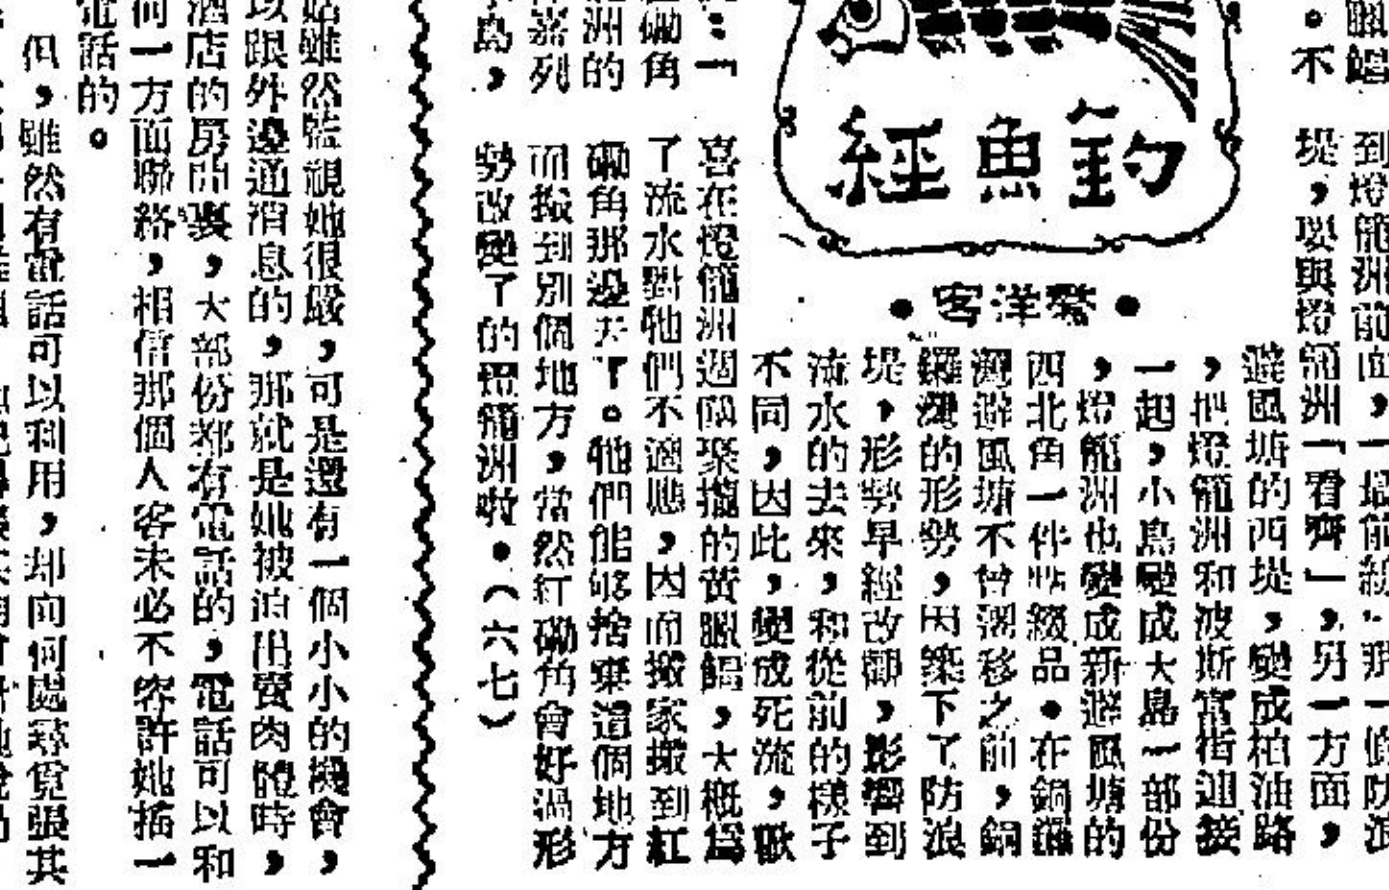 釣魚經
●客洋蹩●
腊鱲
。不
到燈籠洲前面,一
堤,要與燈籠洲「看齊」,另一方面,
避風塘的西堤,變成柏油路
,把燈籠洲和波斯富街連接
一起,小島變成大島一部份
,燈籠洲也變成新避風塘的
四北角一件點綴品。在銅鑼
灣避風塘不曾搬移之前,銅
鑼灣的形勢,因築下了防浪
堤,形勢早經改變,影響到
流水的去來,和從前的樣子
不同,因此,變成死流,歡
喜在燈籠洲週圍聚攏的黃腳鱲,大概為
了流水對牠們不適應,因而搬家搬到紅
磡角那邊去了。牠們能夠捨棄這個地方
而搬到別個地方,當然紅磡角會好過形
勢改變了的燈籠洲啦。(六七)
:「
磡角
洲的
嘉列
島,
雖然監視她很嚴,可是還有一個小小的機會,
以跟外邊通消息的,那就是她被迫出賣肉體時,
酒店的房間裏,大部份都有電話的,電話可以和
何一方面聯絡,相信那個人客未必不容許她搖一
電話的。
但,雖然有電話可以利用,却向何處尋覓張其